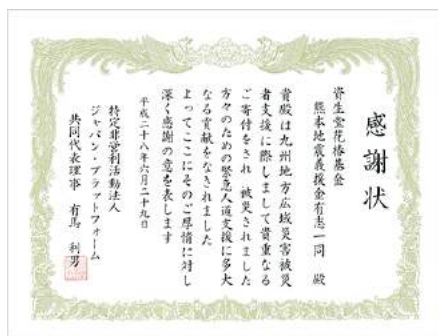 感謝状
資生堂花椿基金
熊本地震義援金有志一同 殿
貴殿は九州地方広域災害被災
者支援に際しまして貴重なる
ご寄付をされ 被災されました
方々のための緊急人道支援に多大
なる貢献をなされました
よってここにそのご厚情に対し
深く感謝の意を表します
平成二十八年六月二十九日
特定非営利活動法人
ジャパン・プラットフォーム
共同代表理事 有馬 利男